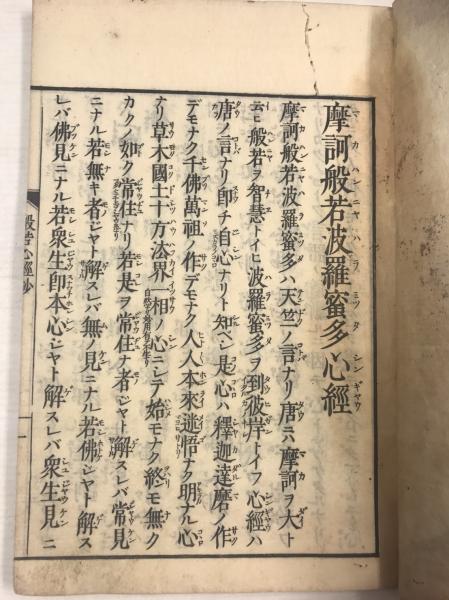 摩訶般若波羅蜜多心經
摩訶般若波羅蜜多ハ天竺ノ言ナリ唐ニハ摩訶ヲ大ト
云ヒ般若ヲ智慧トイヒ波羅蜜多ヲ到彼岸トイフ心經ハ
唐ノ言ナリ即チ自心ナリト知ベシ是心ハ釋迦達磨ノ作
デモナク千佛萬祖ノ作デモナク人人本來迷悟ナク明ナル心
ナリ草木國土十方法界一相ノ心ニシテ始モナク終モ無ク
カクノ如ク常住ナリ若是ヲ常住ナ者ジヤト解スレバ常見
ニナル若無キ者ジヤト解スレバ無ノ見ニナル若佛ジヤト解ス
レバ佛見ニナル若衆生即本心ジヤト解スレバ衆生見ニ
般若心經抄
一